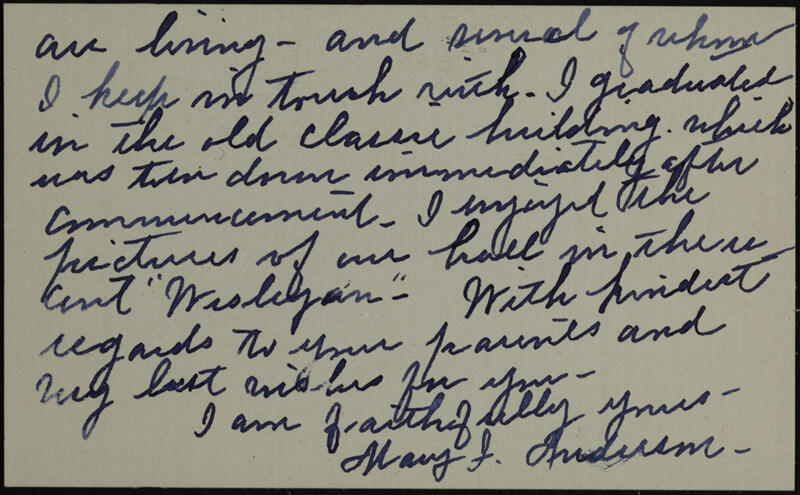 are living - and several of whom
I keep in touch with - I graduated
in the old classic building which
was torn down immediately after
commencement - I enjoyed the
pictures of our hall in the re-
cent "Wesleyan" - With kindest
regards to your parents and
my best wishes for you -
I am faithfully yours -
Mary J. Anderson -